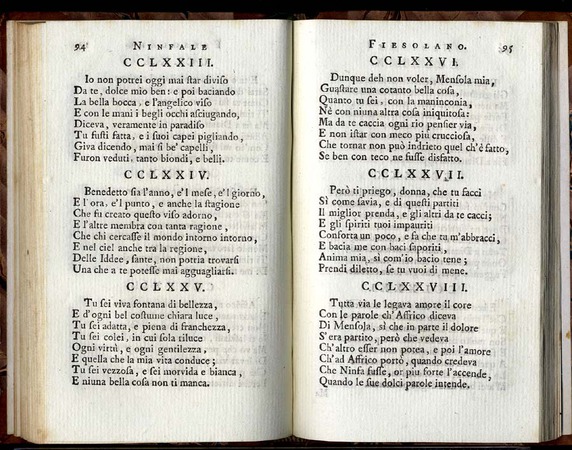 94 NINFALE
CCLXXIII.
Io non potrei oggi mai ſtar diviso
Da te, dolce mio ben: e poi baciando
La bella bocca, e l'angelico viso
E con le mani i begli occhi asciugando,
Diceva, veramente in paradiso
Tu fuſti fatta, e i suoi capei pigliando,
Giva dicendo, mai sì be' capelli,
Furon veduti, tanto biondi, e belli.
CCLXXIV.
Benedetto sia l'anno, e'l mese, e'l giorno,
E l'ora, e'l punto, e anche la ſtagione
Che fu creato queſto viso adorno,
E l'altre membra con tanta ragione,
Che chi cercasse il mondo intorno intorno,
E nel ciel anche tra la regione,
Delle Iddee, sante, non potria trovarsi
Una che a te potesse mai agguagliarsi.
CCLXXV.
Tu sei viva fontana di bellezza,
E d'ogni bel costume chiara luce,
Tu sei adatta, e piena di franchezza,
Tu sei colei, in cui sola riluce
Ogni virtù, e ogni gentilezza,
E quella che la mia vita conduce;
Tu sei vezzosa, e sei morvida e bianca,
E niuna bella cosa non ti manca.
FIESOLANO. 95
CCLXXVI.
Dunque deh non voler, Mensola mia,
Guaſtare una cotanto bella cosa,
Quanto tu sei, con la maninconia,
Nè con niuna altra cosa iniquitosa:
Ma da te caccia ogni rio pensier via,
E non iſtar con meco più crucciosa,
Che tornar non può indrieto quel ch'è fatto,
Se ben con teco ne fusse disfatto.
CCLXXVII.
Però ti priego, donna, che tu facci
Sì come savia, e di queſti partiti
Il miglior prenda, e gli altri da te cacci;
E gli spiriti tuoi impauriti
Conforta un poco, e fa che tu m'abbracci,
E bacia me con baci saporiti,
Anima mia, sì com'io bacio tene;
Prendi diletto, se tu vuoi di mene.
CCLXXVIII.
Tutta via le legava amore il core
Con le parole ch'Affrico diceva
Di Mensola, sì che in parte il dolore
S'era partito, però che vedeva
Ch'altro esser non potea, e poi l'amore
Ch'ad Affrico portò, quando credeva
Che Ninfa fusse, or più forte l'accende,
Quando le sue dolci parole intende.